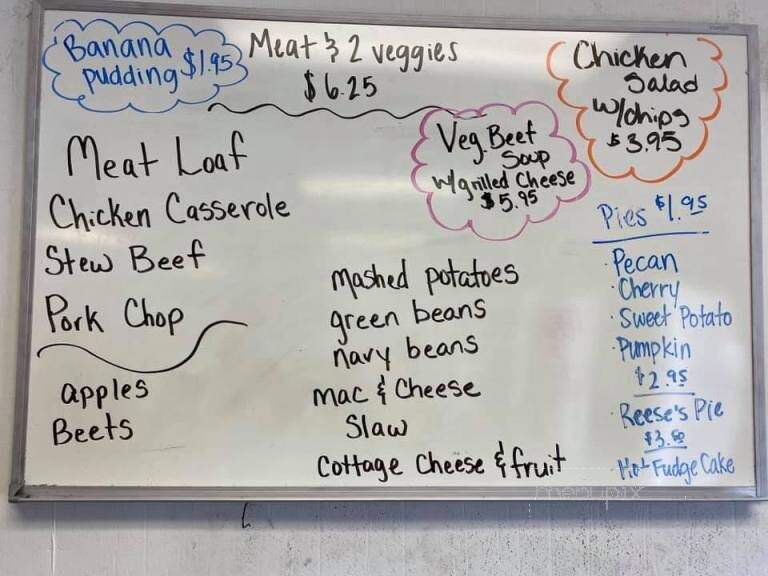 Banana
pudding $1.95
Meat & 2 veggies
$6.25
Chicken
Salad
w/chips
$3.95
Veg. Beef
Soup
w/grilled Cheese
$5.95
Meat Loaf
Chicken Casserole
Stew Beef
Pork Chop
apples
Beets
mashed potatoes
green beans
navy beans
mac & Cheese
Slaw
Cottage Cheese & fruit
Pies $1.95
· Pecan
· Cherry
· Sweet Potato
· Pumpkin
$2.95
· Reese's Pie
$3.50
· Hot Fudge Cake
menupix